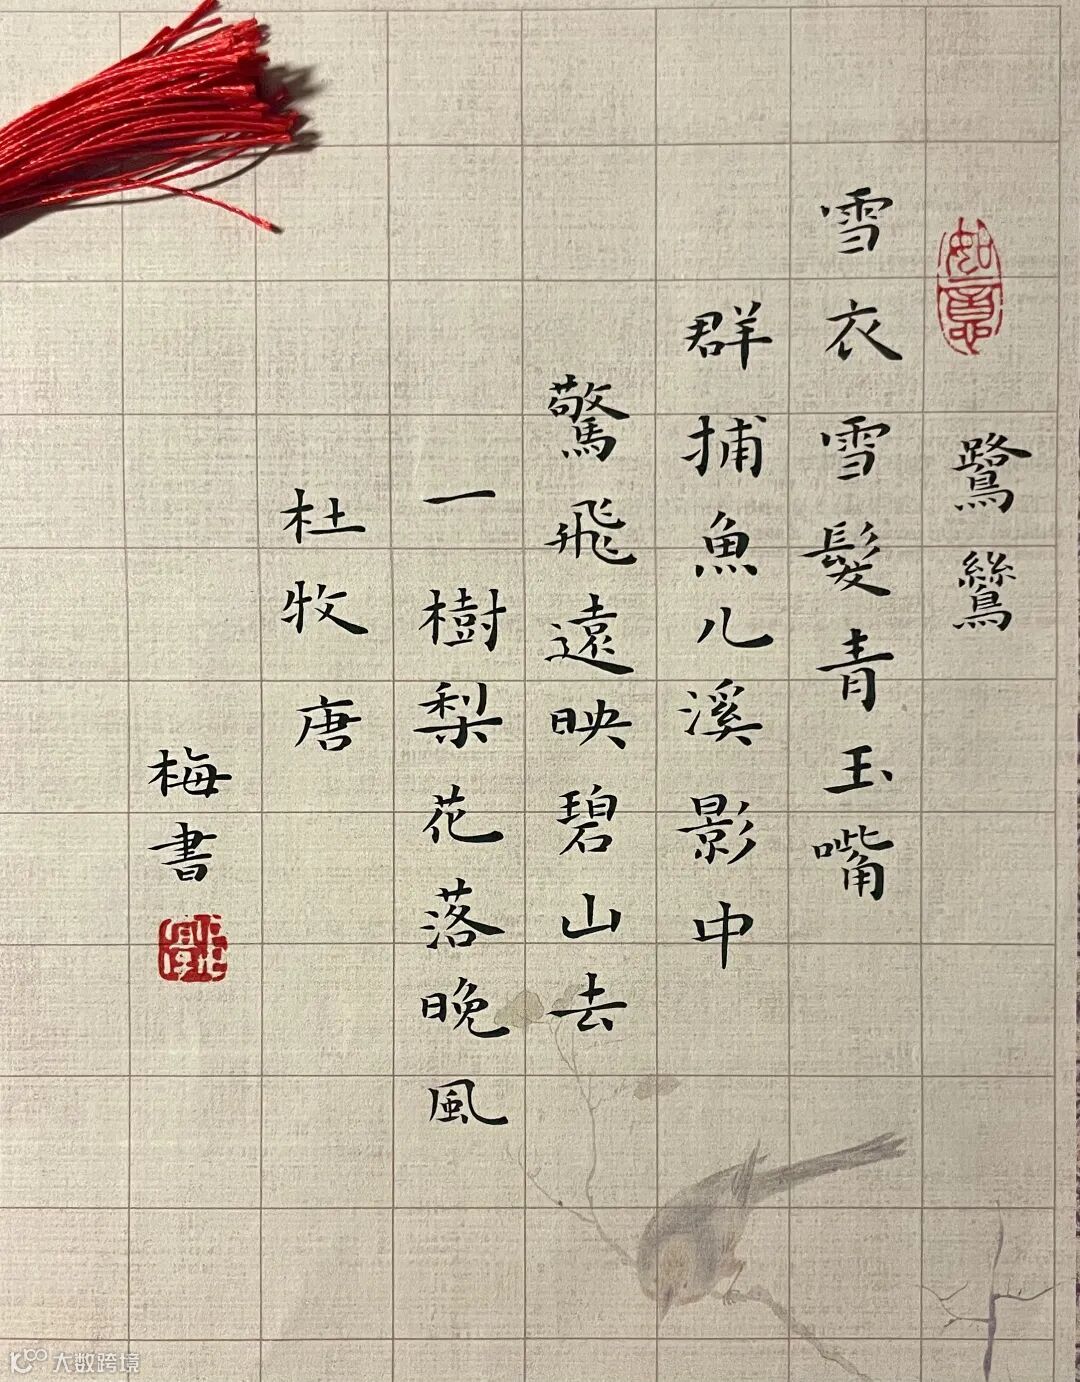 如意
鷺鷥
雪衣雪髮青玉嘴
群捕魚儿溪影中
驚飛遠映碧山去
一樹梨花落晚風
杜牧唐
梅書
大数跨境